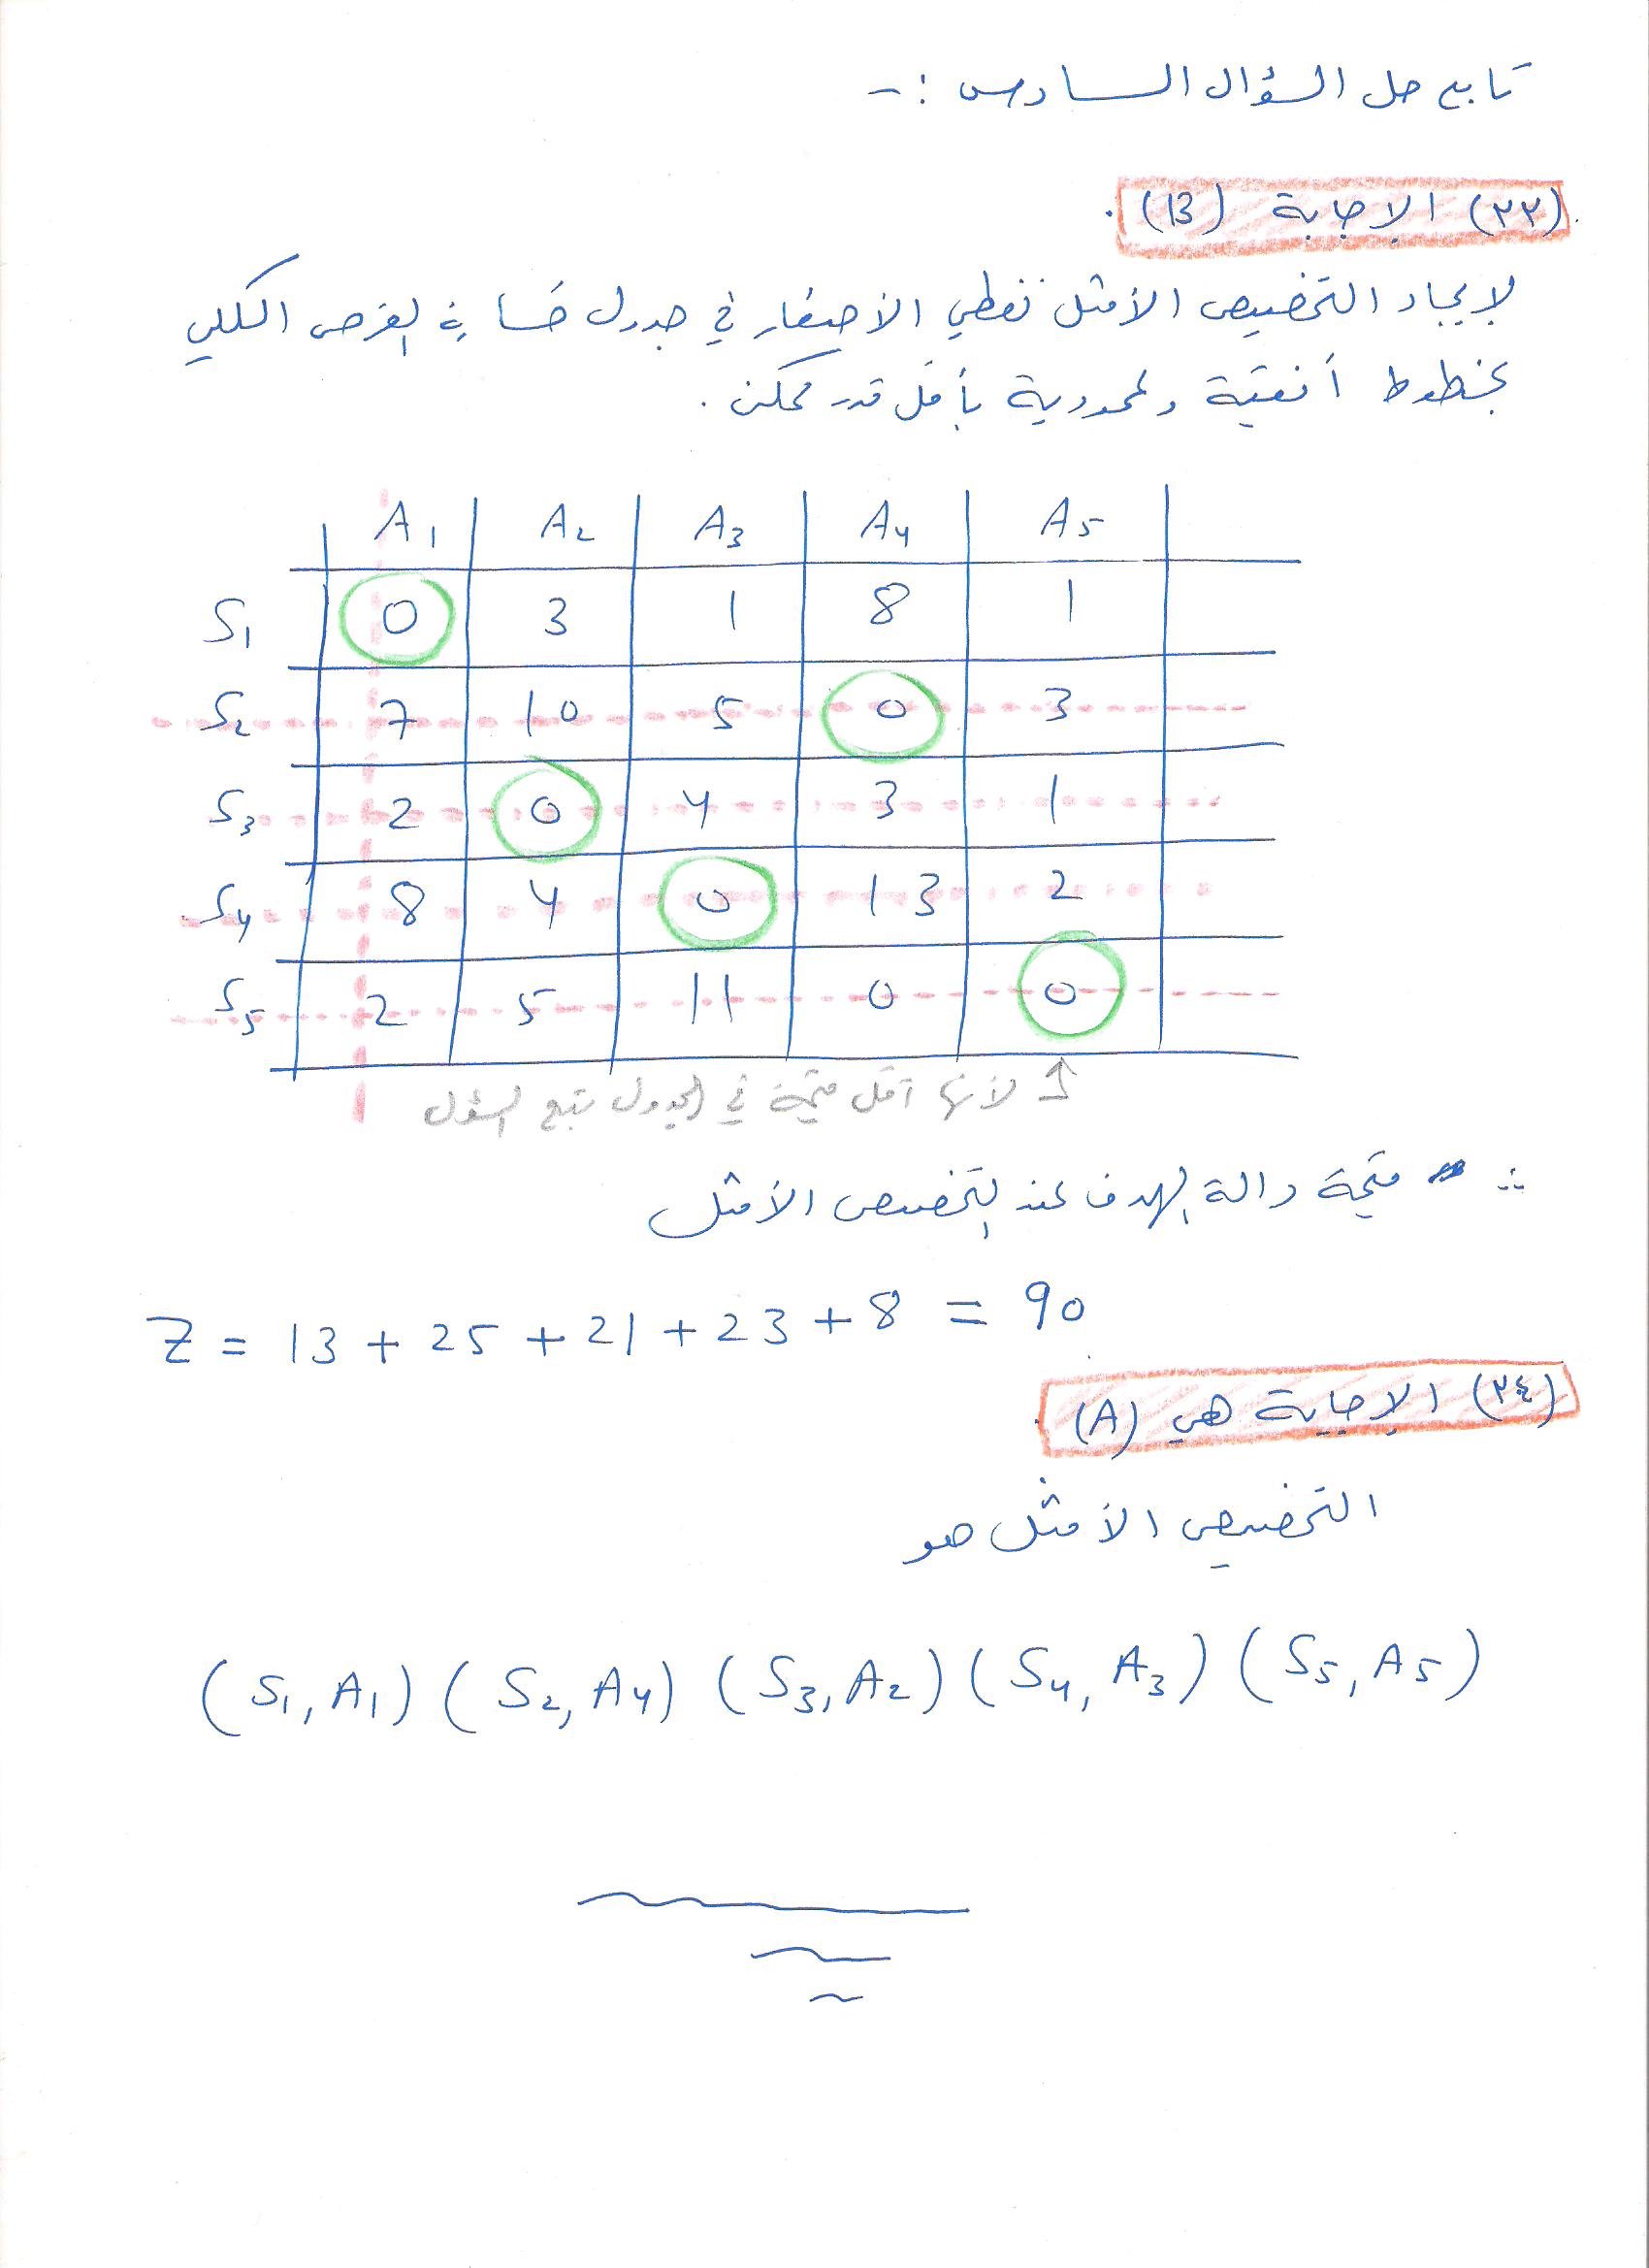 تابع حل السؤال السادس :-
(٢٣) الإجابة (B) .
لإيجاد التخصيص الأمثل نغطي الأصفار في جدول خسارة الفرص الكلي
بخطوط أفقية وعمودية بأقل قدر ممكن .
A1 A2 A3 A4 A5
S1 0 3 1 8 1
S2 7 10 5 0 3
S3 2 0 4 3 1
S4 8 4 0 13 2
S5 2 5 11 0 0
↑ لأنها أقل قيمة في الجدول بتبع السؤال
∴ قيمة دالة الهدف عند التخصيص الأمثل
Z = 13 + 25 + 21 + 23 + 8 = 90
(٢٤) الإجابة هي (A) .
التخصيص الأمثل هو
(S1, A1) (S2, A4) (S3, A2) (S4, A3) (S5, A5)